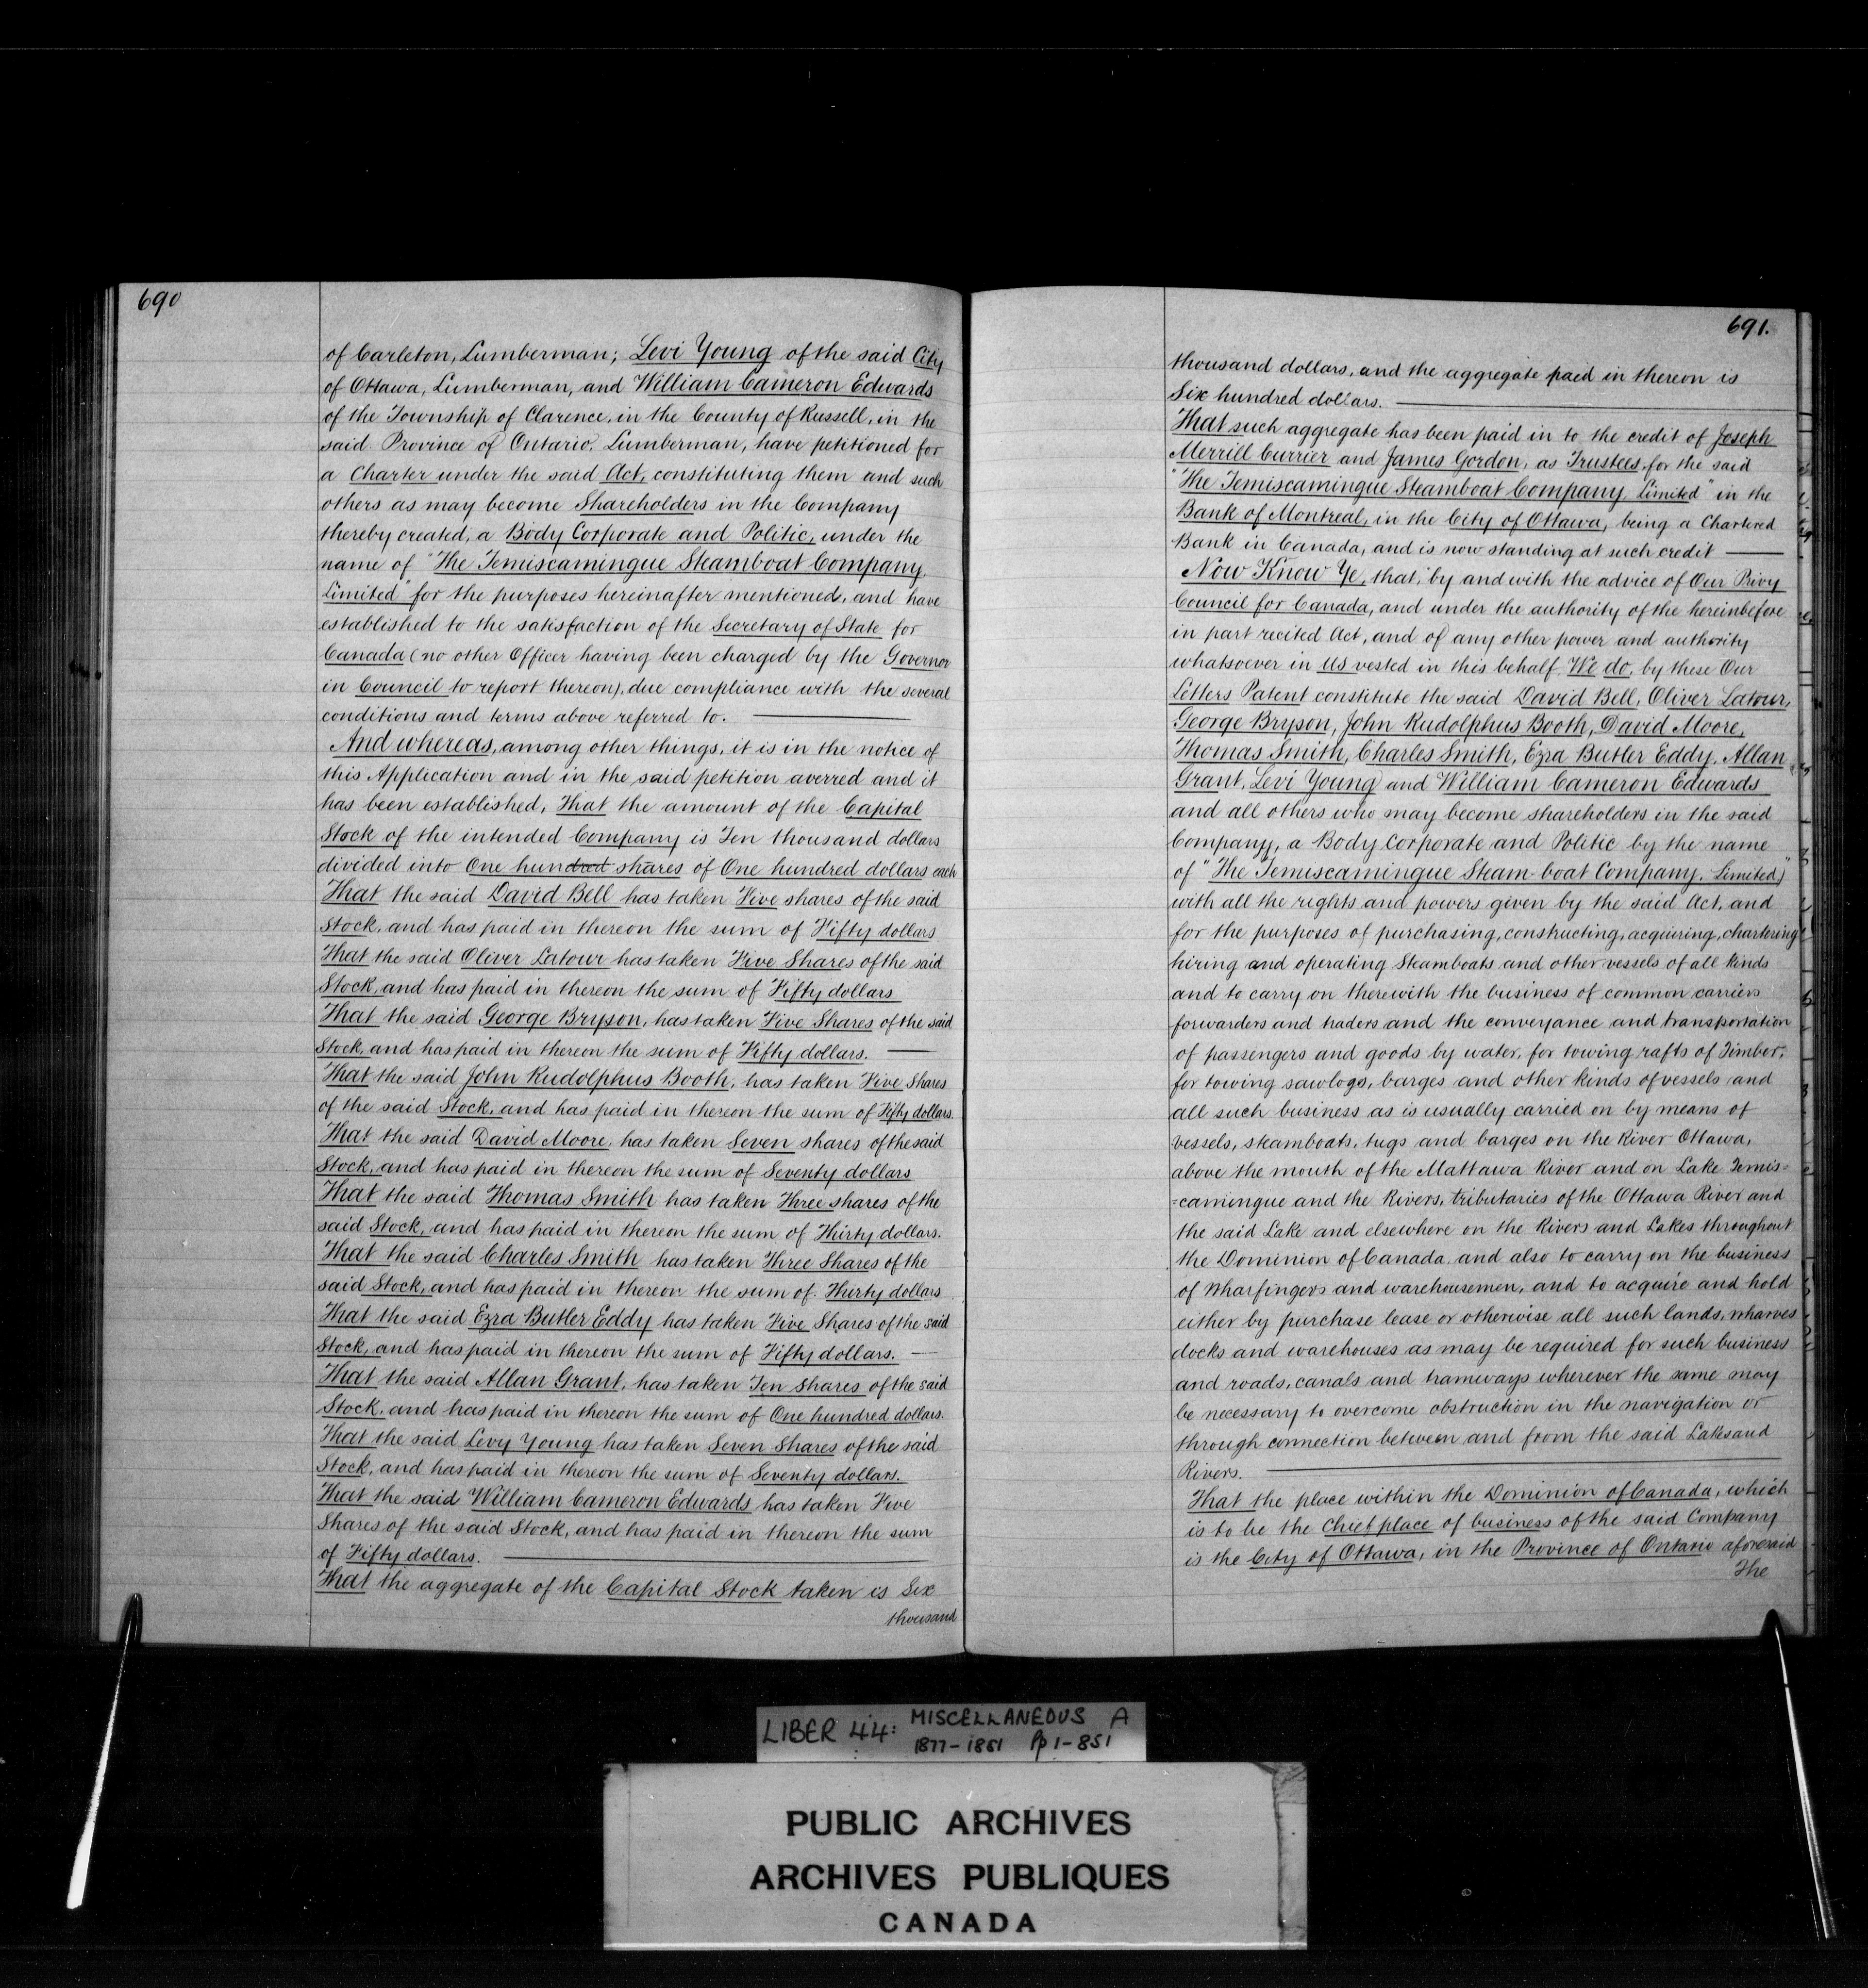 690
of Carleton, Lumberman; Levi Young of the said City
of Ottawa, Lumberman, and William Cameron Edwards
of the Township of Clarence, in the County of Russell, in the
said Province of Ontario, Lumberman, have petitioned for
a Charter under the said Act, constituting them and such
others as may become Shareholders in the Company
thereby created, a Body Corporate and Politic, under the
name of "The Temiscamingue Steamboat Company,
Limited" for the purposes hereinafter mentioned, and have
established to the satisfaction of the Secretary of State for
Canada (no other Officer having been charged by the Governor
in Council to report thereon), due compliance with the several
conditions and terms above referred to.
And whereas, among other things, it is in the notice of
this Application and in the said petition averred and it
has been established, That the amount of the Capital
Stock of the intended Company is Ten thousand dollars
divided into One hundred shares of One hundred dollars each
That the said David Bell has taken Five shares of the said
Stock, and has paid in thereon the sum of Fifty dollars
That the said Oliver Latour has taken Five Shares of the said
Stock, and has paid in thereon the sum of Fifty dollars
That the said George Bryson, has taken Five Shares of the said
Stock, and has paid in thereon the sum of Fifty dollars.
That the said John Rudolphus Booth, has taken Five Shares
of the said Stock, and has paid in thereon the sum of Fifty dollars.
That the said David Moore, has taken Seven shares of the said
Stock, and has paid in thereon the sum of Seventy dollars
That the said Thomas Smith has taken Three shares of the
said Stock, and has paid in thereon the sum of Thirty dollars.
That the said Charles Smith has taken Three Shares of the
said Stock, and has paid in thereon the sum of Thirty dollars
That the said Ezra Butler Eddy has taken Five Shares of the said
Stock, and has paid in thereon the sum of Fifty dollars.
That the said Allan Grant, has taken Ten shares of the said
Stock, and has paid in thereon the sum of One hundred dollars.
That the said Levy Young has taken Seven Shares of the said
Stock, and has paid in thereon the sum of Seventy dollars.
That the said William Cameron Edwards has taken Five
Shares of the said Stock, and has paid in thereon the sum
of Fifty dollars.
That the aggregate of the Capital Stock taken is Six
thousand
691.
thousand dollars, and the aggregate paid in thereon is
Six hundred dollars.
That such aggregate has been paid in to the credit of Joseph
Merrill Currier and James Gordon, as Trustees, for the said
"The Temiscamingue Steamboat Company, Limited" in the
Bank of Montreal, in the City of Ottawa, being a Chartered
Bank in Canada, and is now standing at such credit
Now Know Ye, that, by and with the advice of Our Privy
Council for Canada, and under the authority of the hereinbefore
in part recited Act, and of any other power and authority
whatsoever in us vested in this behalf We do, by these Our
Letters Patent constitute the said David Bell, Oliver Latour,
George Bryson, John Rudolphus Booth, David Moore,
Thomas Smith, Charles Smith, Ezra Butler Eddy, Allan
Grant, Levi Young and William Cameron Edwards
and all others who may become shareholders in the said
Company, a Body Corporate and Politic by the name
of "The Temiscamingue Steam-boat Company. Limited)"
with all the rights and powers given by the said Act, and
for the purposes of purchasing, constructing, acquiring, chartering
hiring and operating Steamboats and other vessels of all kinds
and to carry on therewith the business of common carriers
forwarders and traders and the conveyance and transportation
of passengers and goods by water, for towing rafts of Timber,
for towing sawlogs, barges and other kinds of vessels and
all such business as is usually carried on by means of
vessels, steamboats, tugs and barges on the River Ottawa,
above the mouth of the Mattawa River and on Lake Temis=
=camingue and the Rivers, tributaries of the Ottawa River and
the said Lake and elsewhere on the Rivers and Lakes throughout
the Dominion of Canada, and also to carry on the business
of Wharfingers and warehousemen, and to acquire and hold
either by purchase lease or otherwise all such lands, wharves
docks and warehouses as may be required for such business
and roads, canals and tramways wherever the same may
be necessary to overcome obstruction in the navigation or
through connection between and from the said Lakes and
Rivers.
That the place within the Dominion of Canada, which
is to be the Chief place of business of the said Company
is the City of Ottawa, in the Province of Ontario aforesaid
The
LIBER 44: MISCELLANEOUS A
1877-1881 Pp 1-851
PUBLIC ARCHIVES
ARCHIVES PUBLIQUES
CANADA